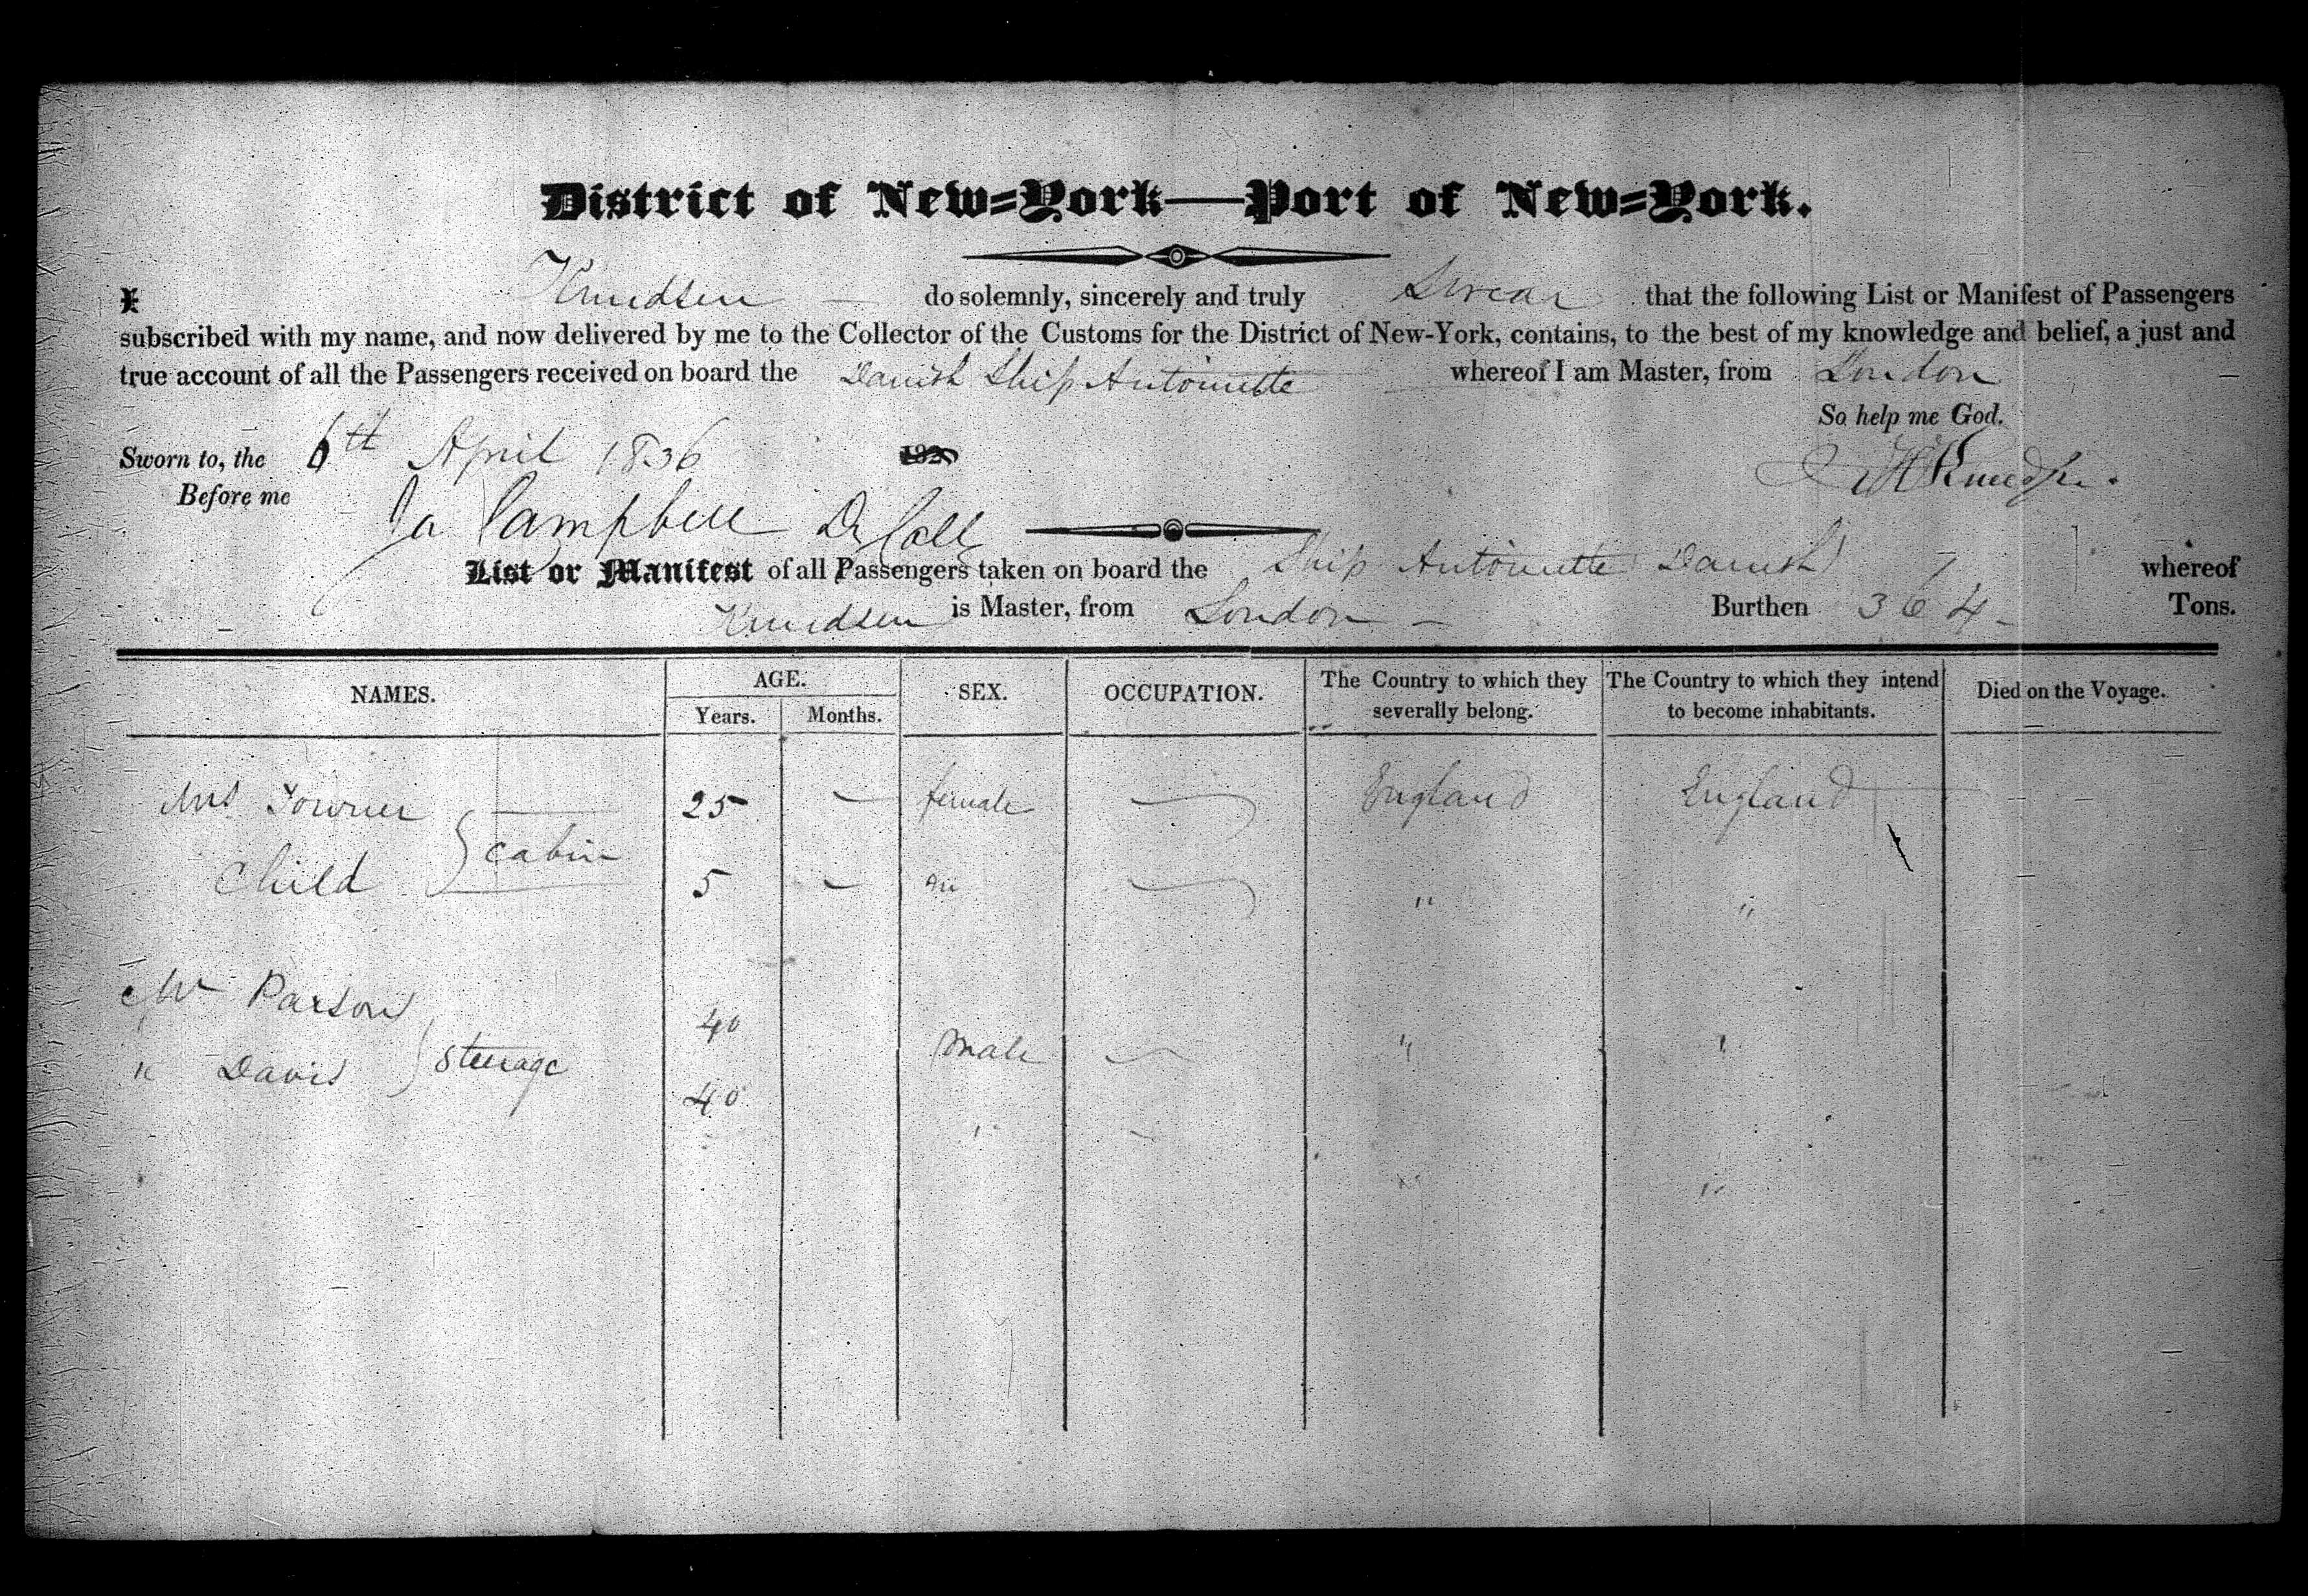 District of New=York—Port of New=York.
I Knudsen — do solemnly, sincerely and truly Swear that the following List or Manifest of Passengers
subscribed with my name, and now delivered by me to the Collector of the Customs for the District of New-York, contains, to the best of my knowledge and belief, a just and
true account of all the Passengers received on board the Danish Ship Antoinette whereof I am Master, from London
So help me God.
Sworn to, the 6th April 1836 182
Knudsen
Before me
Ja Campbell Dy Coll
List or Manifest of all Passengers taken on board the Ship Antoinette Danish whereof
Knudsen is Master, from London — Burthen 364 Tons.
NAMES. AGE. SEX. OCCUPATION. The Country to which they severally belong. The Country to which they intend to become inhabitants. Died on the Voyage.
Years. Months.
Mrs 25 — female — England England
cabin
Child 5 — " "
Mr Parsons 40 Male — " "
Steerage
" Davis 40 " — " "